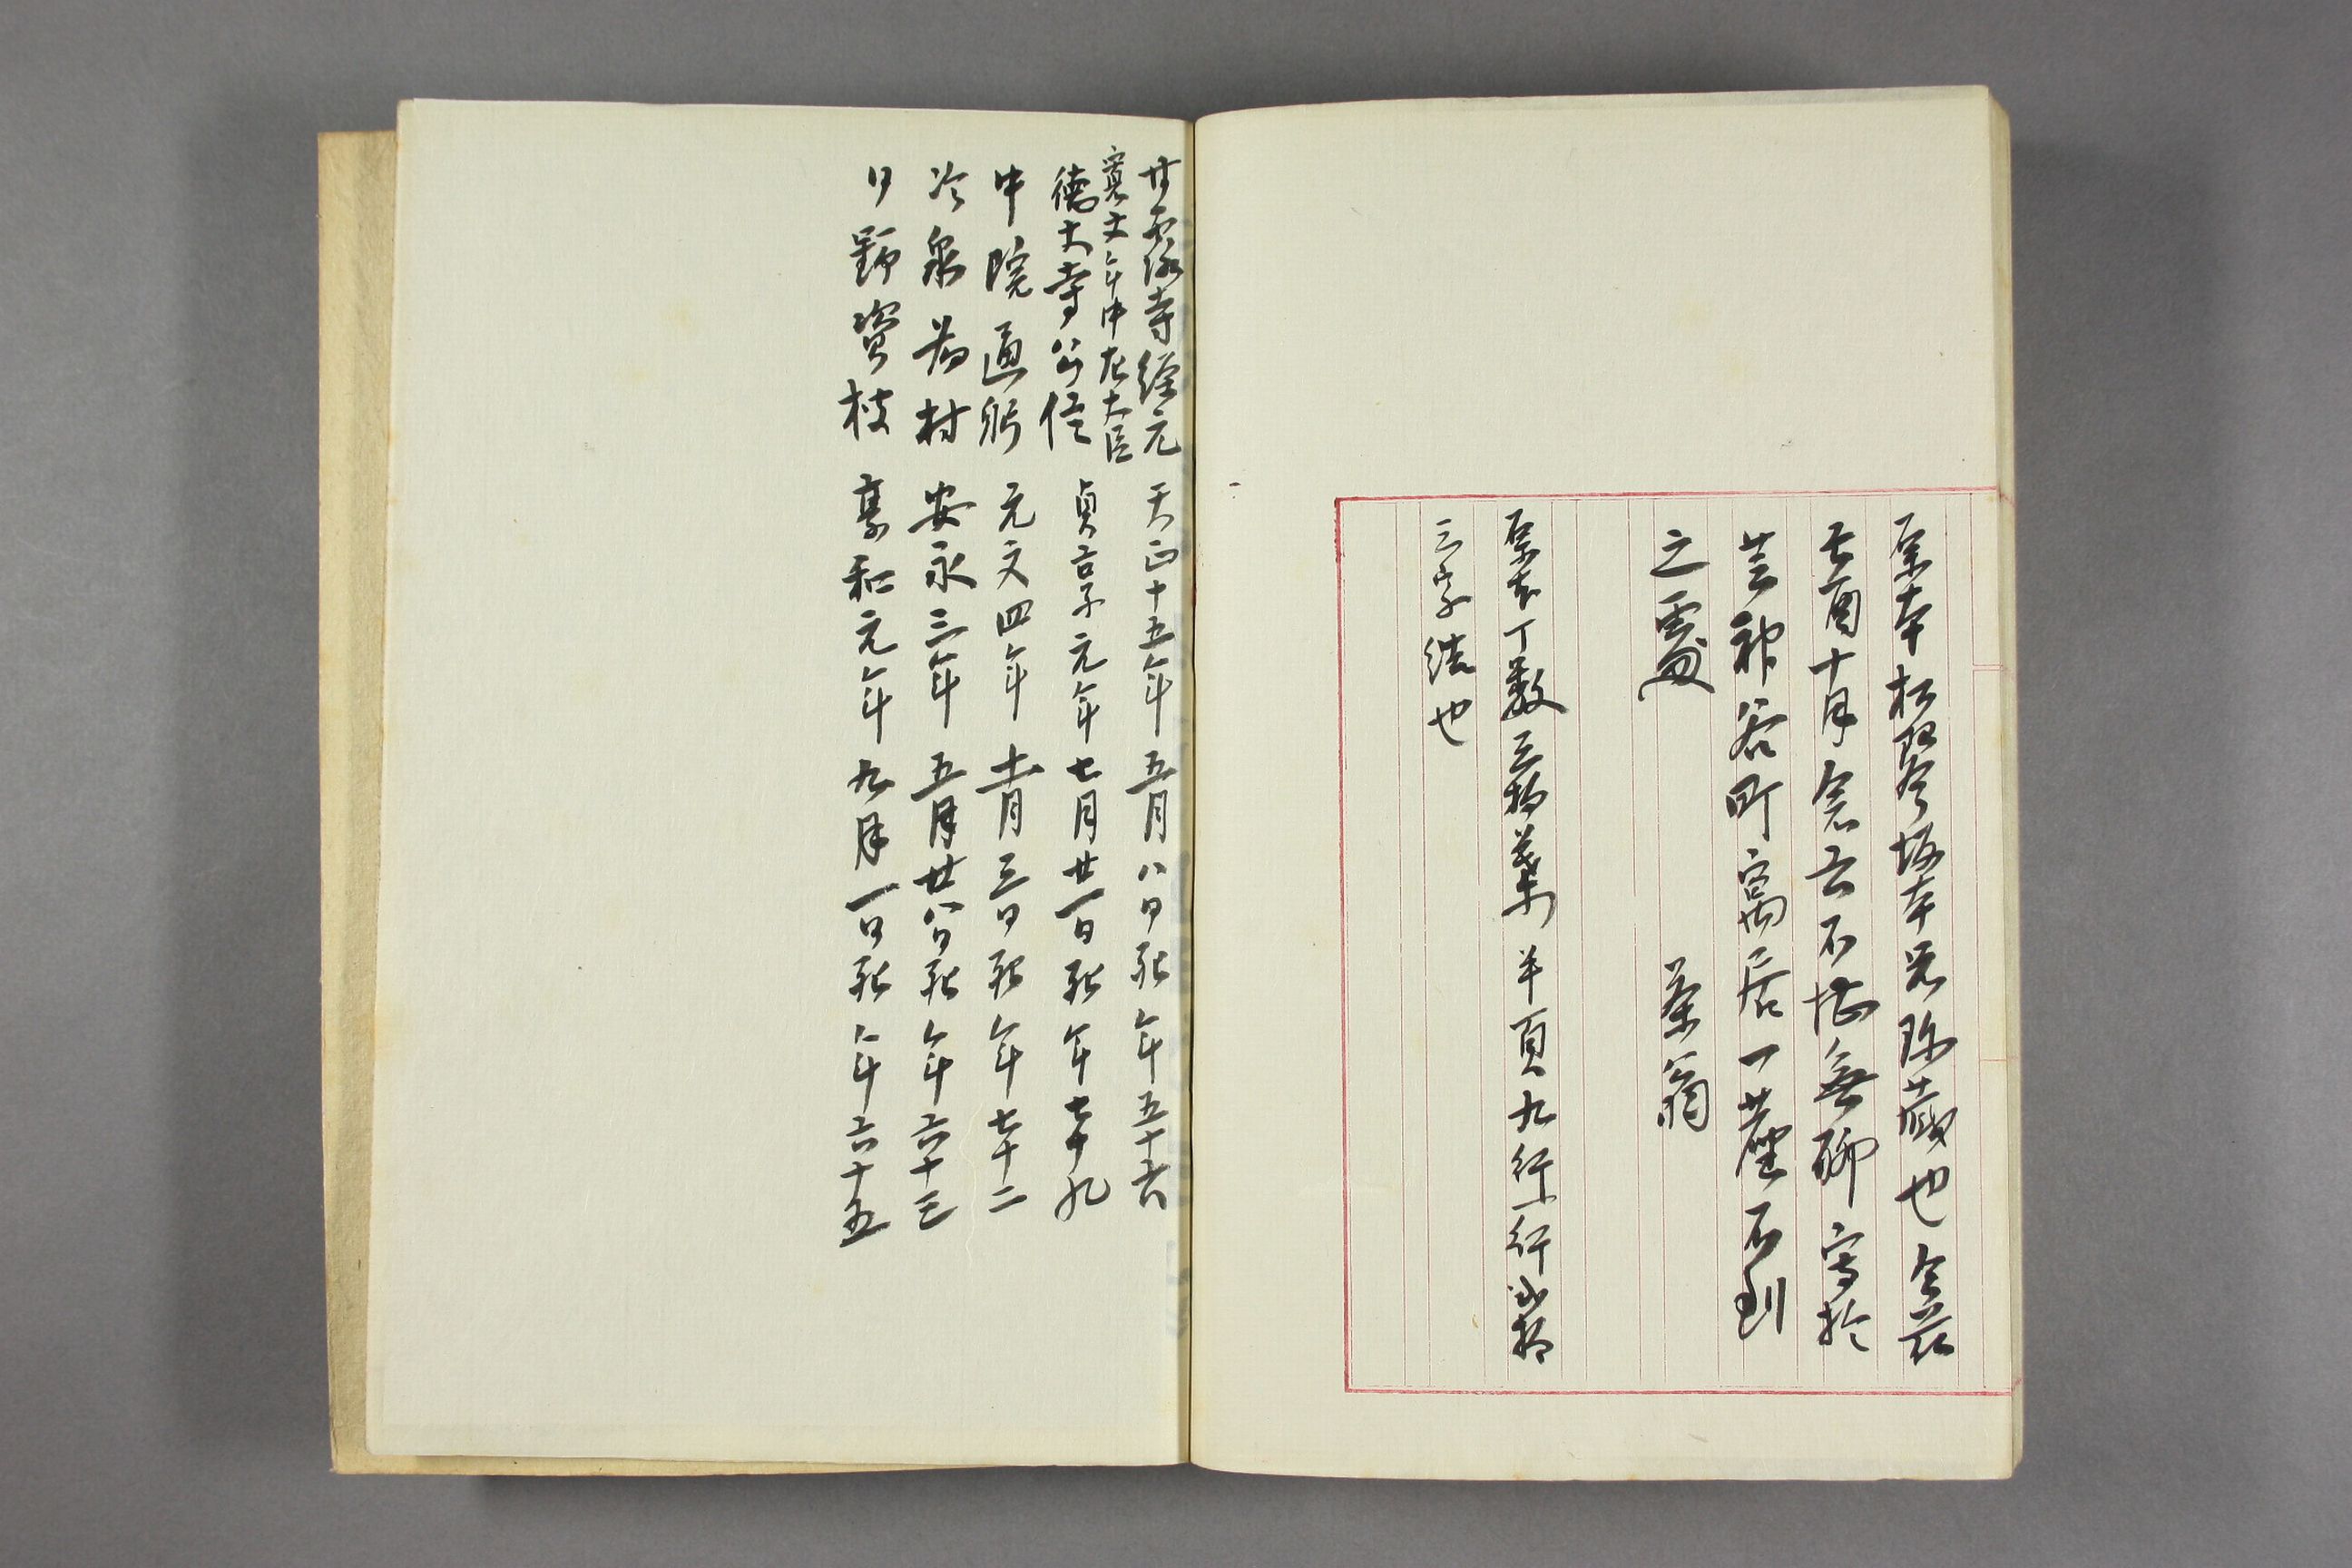 原本松阪今坂本兄珍蔵也今茲
丁酉十月念六不堪無聊写於
芸神谷町寓居一塵不到
之処
茶翁
原本丁数三拾葉半頁九行一行弐拾
三字詰也
甘露寺経元 天正十五年五月八日死 年五十六
寛文年中左大臣
徳大寺公信 貞享元年七月廿一日死 年七十九
中院通躬 元文四年十一月三日死 年七十二
冷泉為村 安永三年五月廿八日死 年六十三
日野資枝 享和元年九月一日死 年六十五